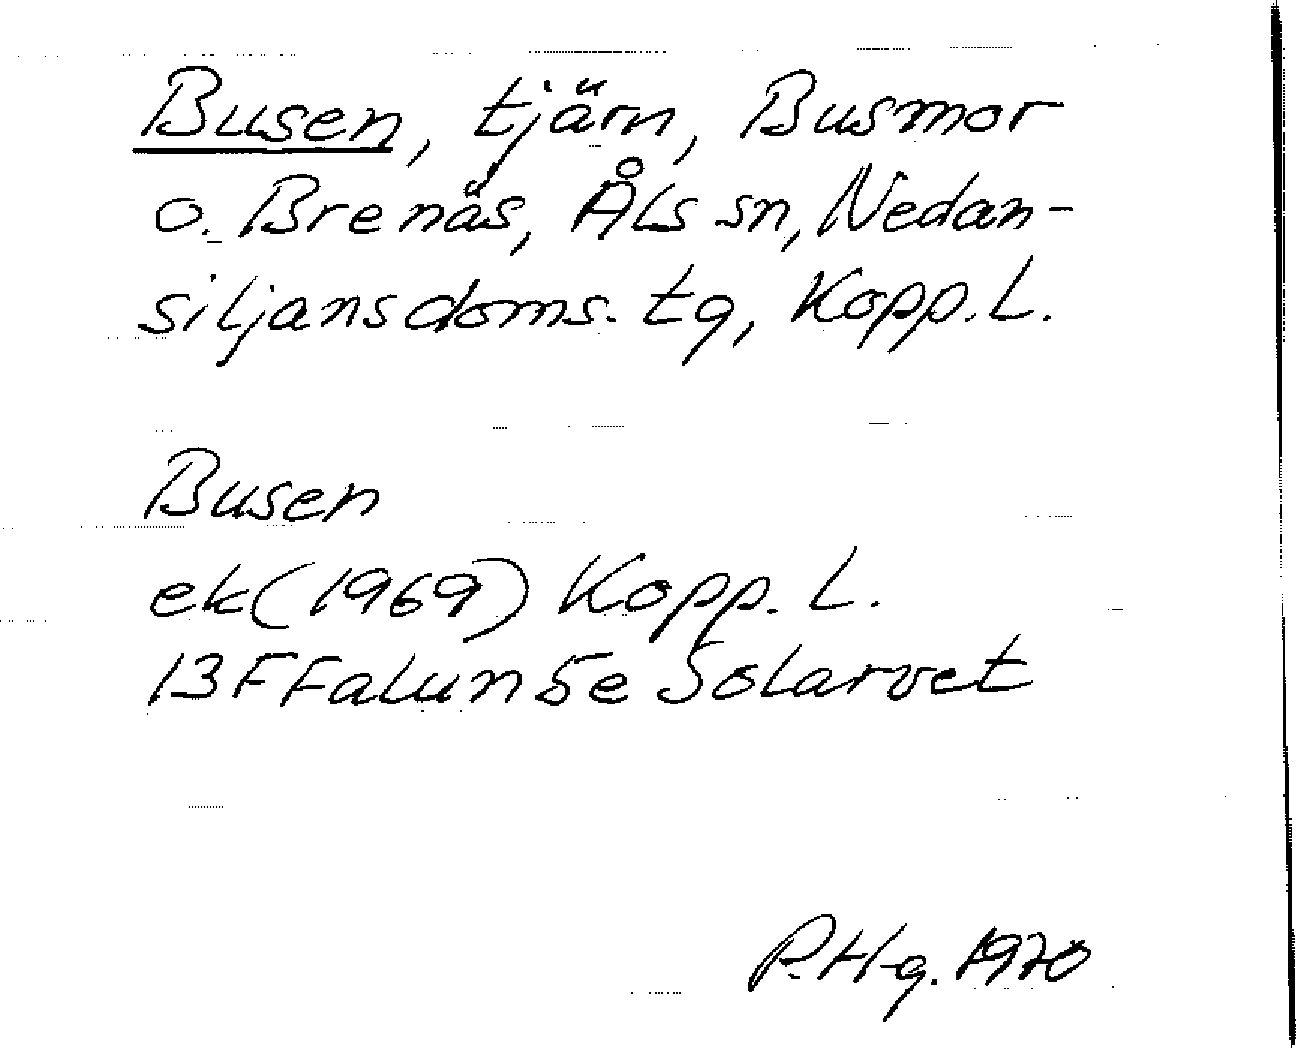 Busen, tjärn, Busmor
o. Brenäs, Åls sn, Nedan-
siljansdoms. tg, Kopp. L.
Busen
ek (1969) Kopp. L.
13F Falun 5e Solarvet
P.Hg. 1970